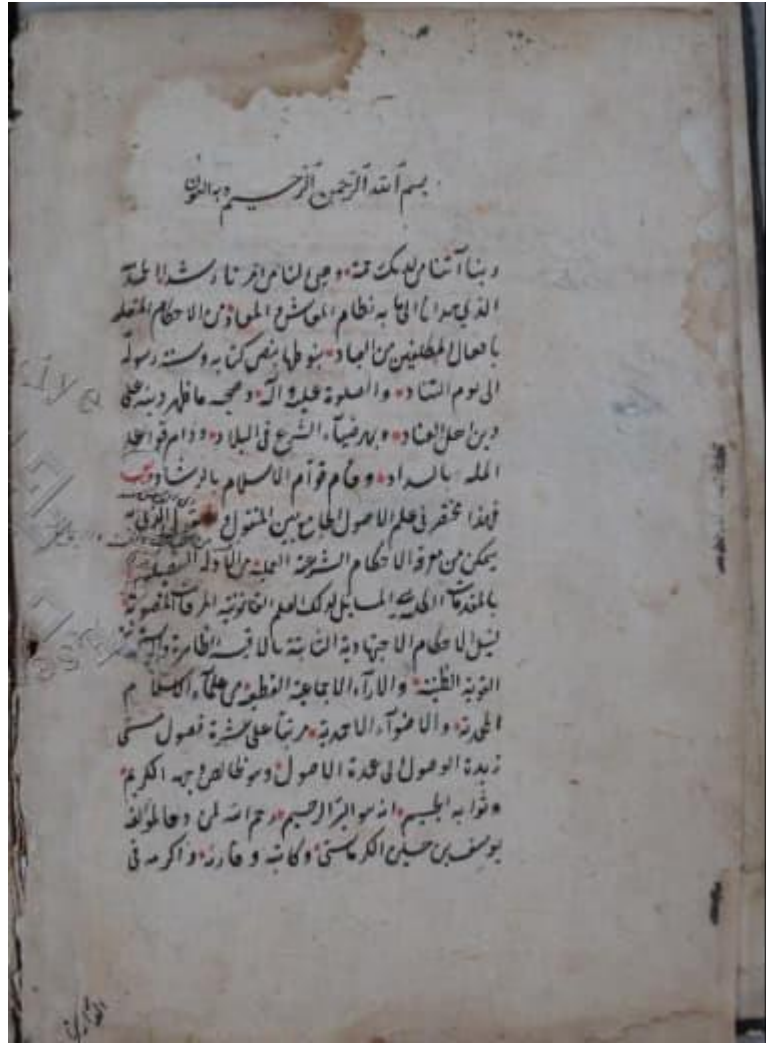 بسم الله الرحمن الرحيم وبه العون
ربنا آتنا من لدنك رحمة وهيئ لنا من امرنا رشدا الحمد لله
الذي هدانا الى ما به نظام المعاش والمعاد من الاحكام المتعلقة
بافعال المكلفين من العباد بنوطها بنص كتابه وسنة رسوله
الى يوم التناد والصلوة عليه وآله وصحبه ما ظهر دينه على
دين اهل العناد وبهر ضياء الشرع في البلاد ودام قواعد
الملة بالسداد وقام قوام الاسلام بالرشاد وبعد
فهذا مختصر في علم الاصول الجامع بين المنقول الذي به
يمكن من معرفة الاحكام الشرعية العملية من الادلة التفصيلية
بالمقدمات الكلية المسائل لذلك العلم القانونية المرقات المنصوبة
لنيل الاحكام الاجتهادية الثابتة بالاقيسة الظاهرة والسنة
القوية الظنية والآراء الاجماعية القطعية من علماء الاسلام
المحمدية والاضواء الاحمدية مرتبا على عشرة فصول مسمى
زبدة الوصول الى عمدة الاصول وهو خالص لوجهه الكريم
وثوابه الجسيم انه هو البر الرحيم رحم الله لمن دعا لمؤلفه
يوسف بن حسين الكرماستي وكاتبه وقارئه واكرمه في